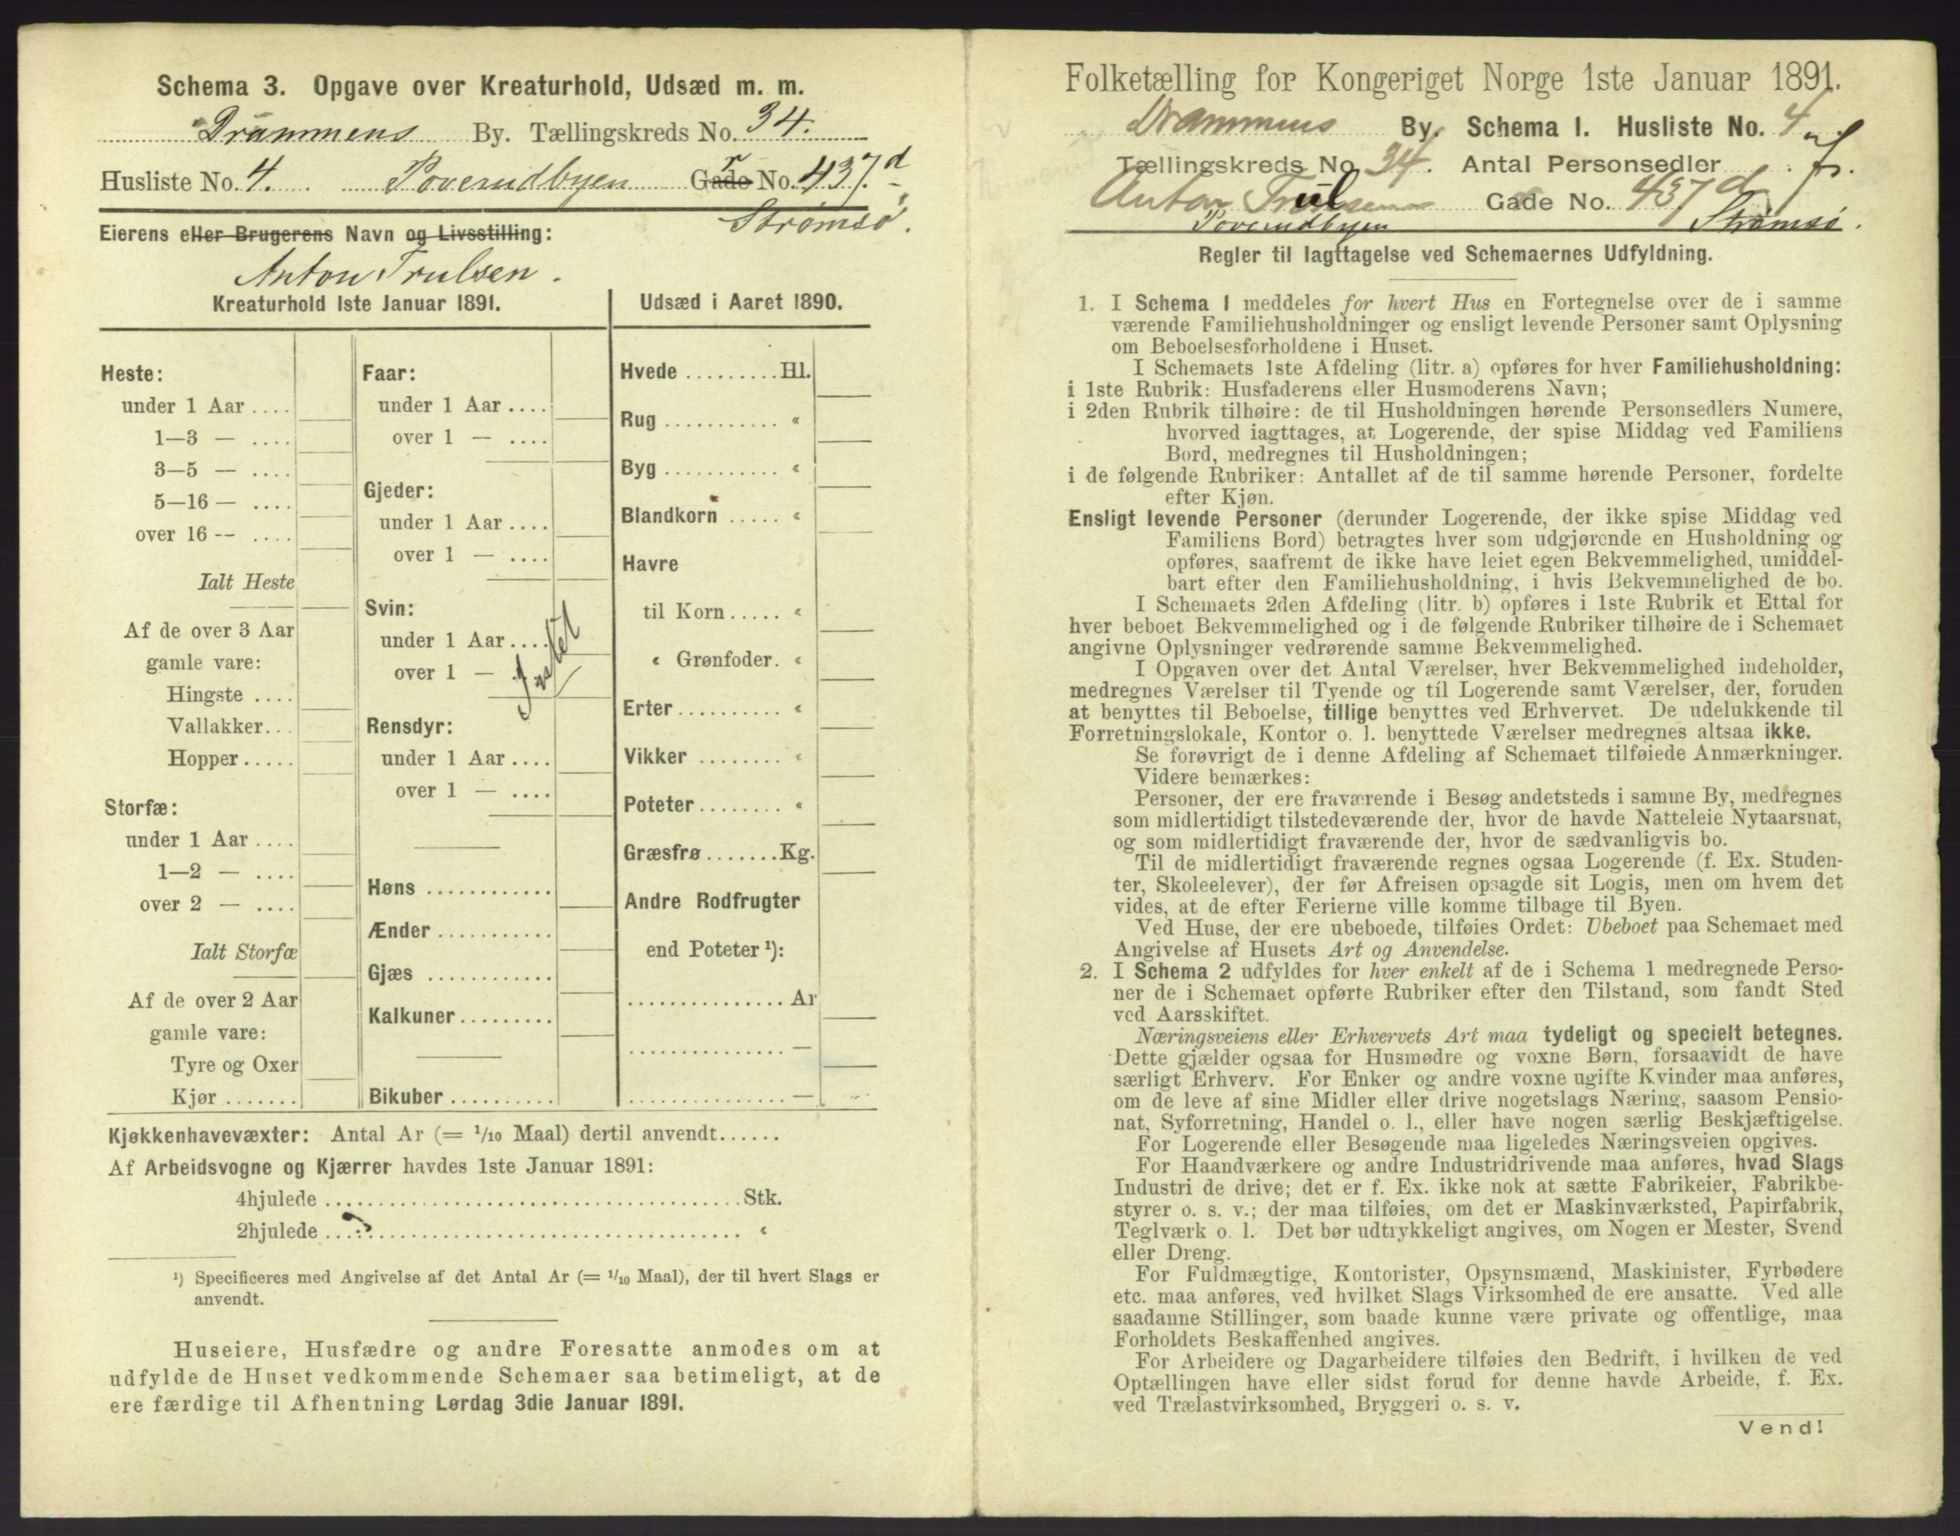 Schema 3. Opgave over Kreaturhold, Udsæd m. m.
Drammens By. Tællingskreds No. 34.
Husliste No. 4. Poverudbyen Gade No. 437.d
Strømsø.
Eierens eller Brugerens Navn og Livsstilling:
Anton Trulsen.
Kreaturhold 1ste Januar 1891.
Heste:
under 1 Aar ....
1—3 — ....
3—5 — ....
5—16 — ....
over 16 — ....
Ialt Heste
Af de over 3 Aar
gamle vare:
Hingste ....
Vallakker...
Hopper.....
Storfæ:
under 1 Aar ....
1—2 — ....
over 2 — ....
Ialt Storfæ
Af de over 2 Aar
gamle vare:
Tyre og Oxer
Kjør .......
Faar:
under 1 Aar ....
over 1 — ....
Gjeder:
under 1 Aar ....
over 1 — ....
Svin:
under 1 Aar ....
over 1 — ....
Rensdyr:
under 1 Aar ....
over 1 — ....
Høns ............
Ænder ...........
Gjæs ............
Kalkuner.........
Bikuber ..........
Udsæd i Aaret 1890.
Hvede .........Hl.
Rug ........... «
Byg ........... «
Blandkorn ..... «
Havre
til Korn..... «
« Grønfoder. «
Erter.......... «
Vikker ........ «
Poteter........ «
Græsfrø.......Kg.
Andre Rodfrugter
end Poteter ¹):
............... Ar
............... —
............... —
Kjøkkenhavevæxter: Antal Ar (= 1/10 Maal) dertil anvendt......
Af Arbeidsvogne og Kjærrer havdes 1ste Januar 1891:
4hjulede ........................................Stk.
2hjulede ........................................ «
¹) Specificeres med Angivelse af det Antal Ar (= 1/10 Maal), der til hvert Slags er
anvendt.
Huseiere, Husfædre og andre Foresatte anmodes om at
udfylde de Huset vedkommende Schemaer saa betimeligt, at de
ere færdige til Afhentning Lørdag 3die Januar 1891.
Folketælling for Kongeriget Norge 1ste Januar 1891.
Drammens By. Schema 1. Husliste No. 4
Tællingskreds No. 34. Antal Personsedler 7.
Anton Gade No. 437 d
Poverudbyen Strømsø.
Regler til Iagttagelse ved Schemaernes Udfyldning.
1. I Schema 1 meddeles for hvert Hus en Fortegnelse over de i samme
værende Familiehusholdninger og ensligt levende Personer samt Oplysning
om Beboelsesforholdene i Huset.
I Schemaets 1ste Afdeling (litr. a) opføres for hver Familiehusholdning:
i 1ste Rubrik: Husfaderens eller Husmoderens Navn;
i 2den Rubrik tilhøire: de til Husholdningen hørende Personsedlers Numere,
hvorved iagttages, at Logerende, der spise Middag ved Familiens
Bord, medregnes til Husholdningen;
i de følgende Rubriker: Antallet af de til samme hørende Personer, fordelte
efter Kjøn.
Ensligt levende Personer (derunder Logerende, der ikke spise Middag ved
Familiens Bord) betragtes hver som udgjørende en Husholdning og
opføres, saafremt de ikke have leiet egen Bekvemmelighed, umiddel-
bart efter den Familiehusholdning, i hvis Bekvemmelighed de bo.
I Schemaets 2den Afdeling (litr. b) opføres i 1ste Rubrik et Ettal for
hver beboet Bekvemmelighed og i de følgende Rubriker tilhøire de i Schemaet
angivne Oplysninger vedrørende samme Bekvemmelighed.
I Opgaven over det Antal Værelser, hver Bekvemmelighed indeholder,
medregnes Værelser til Tyende og til Logerende samt Værelser, der, foruden
at benyttes til Beboelse, tillige benyttes ved Erhvervet. De udelukkende til
Forretningslokale, Kontor o. l. benyttede Værelser medregnes altsaa ikke.
Se forøvrigt de i denne Afdeling af Schemaet tilføiede Anmærkninger.
Videre bemærkes:
Personer, der ere fraværende i Besøg andetsteds i samme By, medregnes
som midlertidigt tilstedeværende der, hvor de havde Natteleie Nytaarsnat,
og som midlertidigt fraværende der, hvor de sædvanligvis bo.
Til de midlertidigt fraværende regnes ogsaa Logerende (f. Ex. Studen-
ter, Skoleelever), der før Afreisen opsagde sit Logis, men om hvem det
vides, at de efter Ferierne ville komme tilbage til Byen.
Ved Huse, der ere ubeboede, tilføies Ordet: Ubeboet paa Schemaet med
Angivelse af Husets Art og Anvendelse.
2. I Schema 2 udfyldes for hver enkelt af de i Schema 1 medregnede Perso-
ner de i Schemaet opførte Rubriker efter den Tilstand, som fandt Sted
ved Aarsskiftet.
Næringsveiens eller Erhvervets Art maa tydeligt og specielt betegnes.
Dette gjælder ogsaa for Husmødre og voxne Børn, forsaavidt de have
særligt Erhverv. For Enker og andre voxne ugifte Kvinder maa anføres,
om de leve af sine Midler eller drive nogetslags Næring, saasom Pensio-
nat, Syforretning, Handel o. l., eller have nogen særlig Beskjæftigelse.
For Logerende eller Besøgende maa ligeledes Næringsveien opgives.
For Haandværkere og andre Industridrivende maa anføres, hvad Slags
Industri de drive; det er f. Ex. ikke nok at sætte Fabrikeier, Fabrikbe-
styrer o. s. v.; der maa tilføies, om det er Maskinværksted, Papirfabrik,
Teglværk o. l. Det bør udtrykkeligt angives, om Nogen er Mester, Svend
eller Dreng.
For Fuldmægtige, Kontorister, Opsynsmænd, Maskinister, Fyrbødere
etc. maa anføres, ved hvilket Slags Virksomhed de ere ansatte. Ved alle
saadanne Stillinger, som baade kunne være private og offentlige, maa
Forholdets Beskaffenhed angives.
For Arbeidere og Dagarbeidere tilføies den Bedrift, i hvilken de ved
Optællingen have eller sidst forud for denne havde Arbeide, f. Ex.
ved Trælastvirksomhed, Bryggeri o. s. v.
Vend!